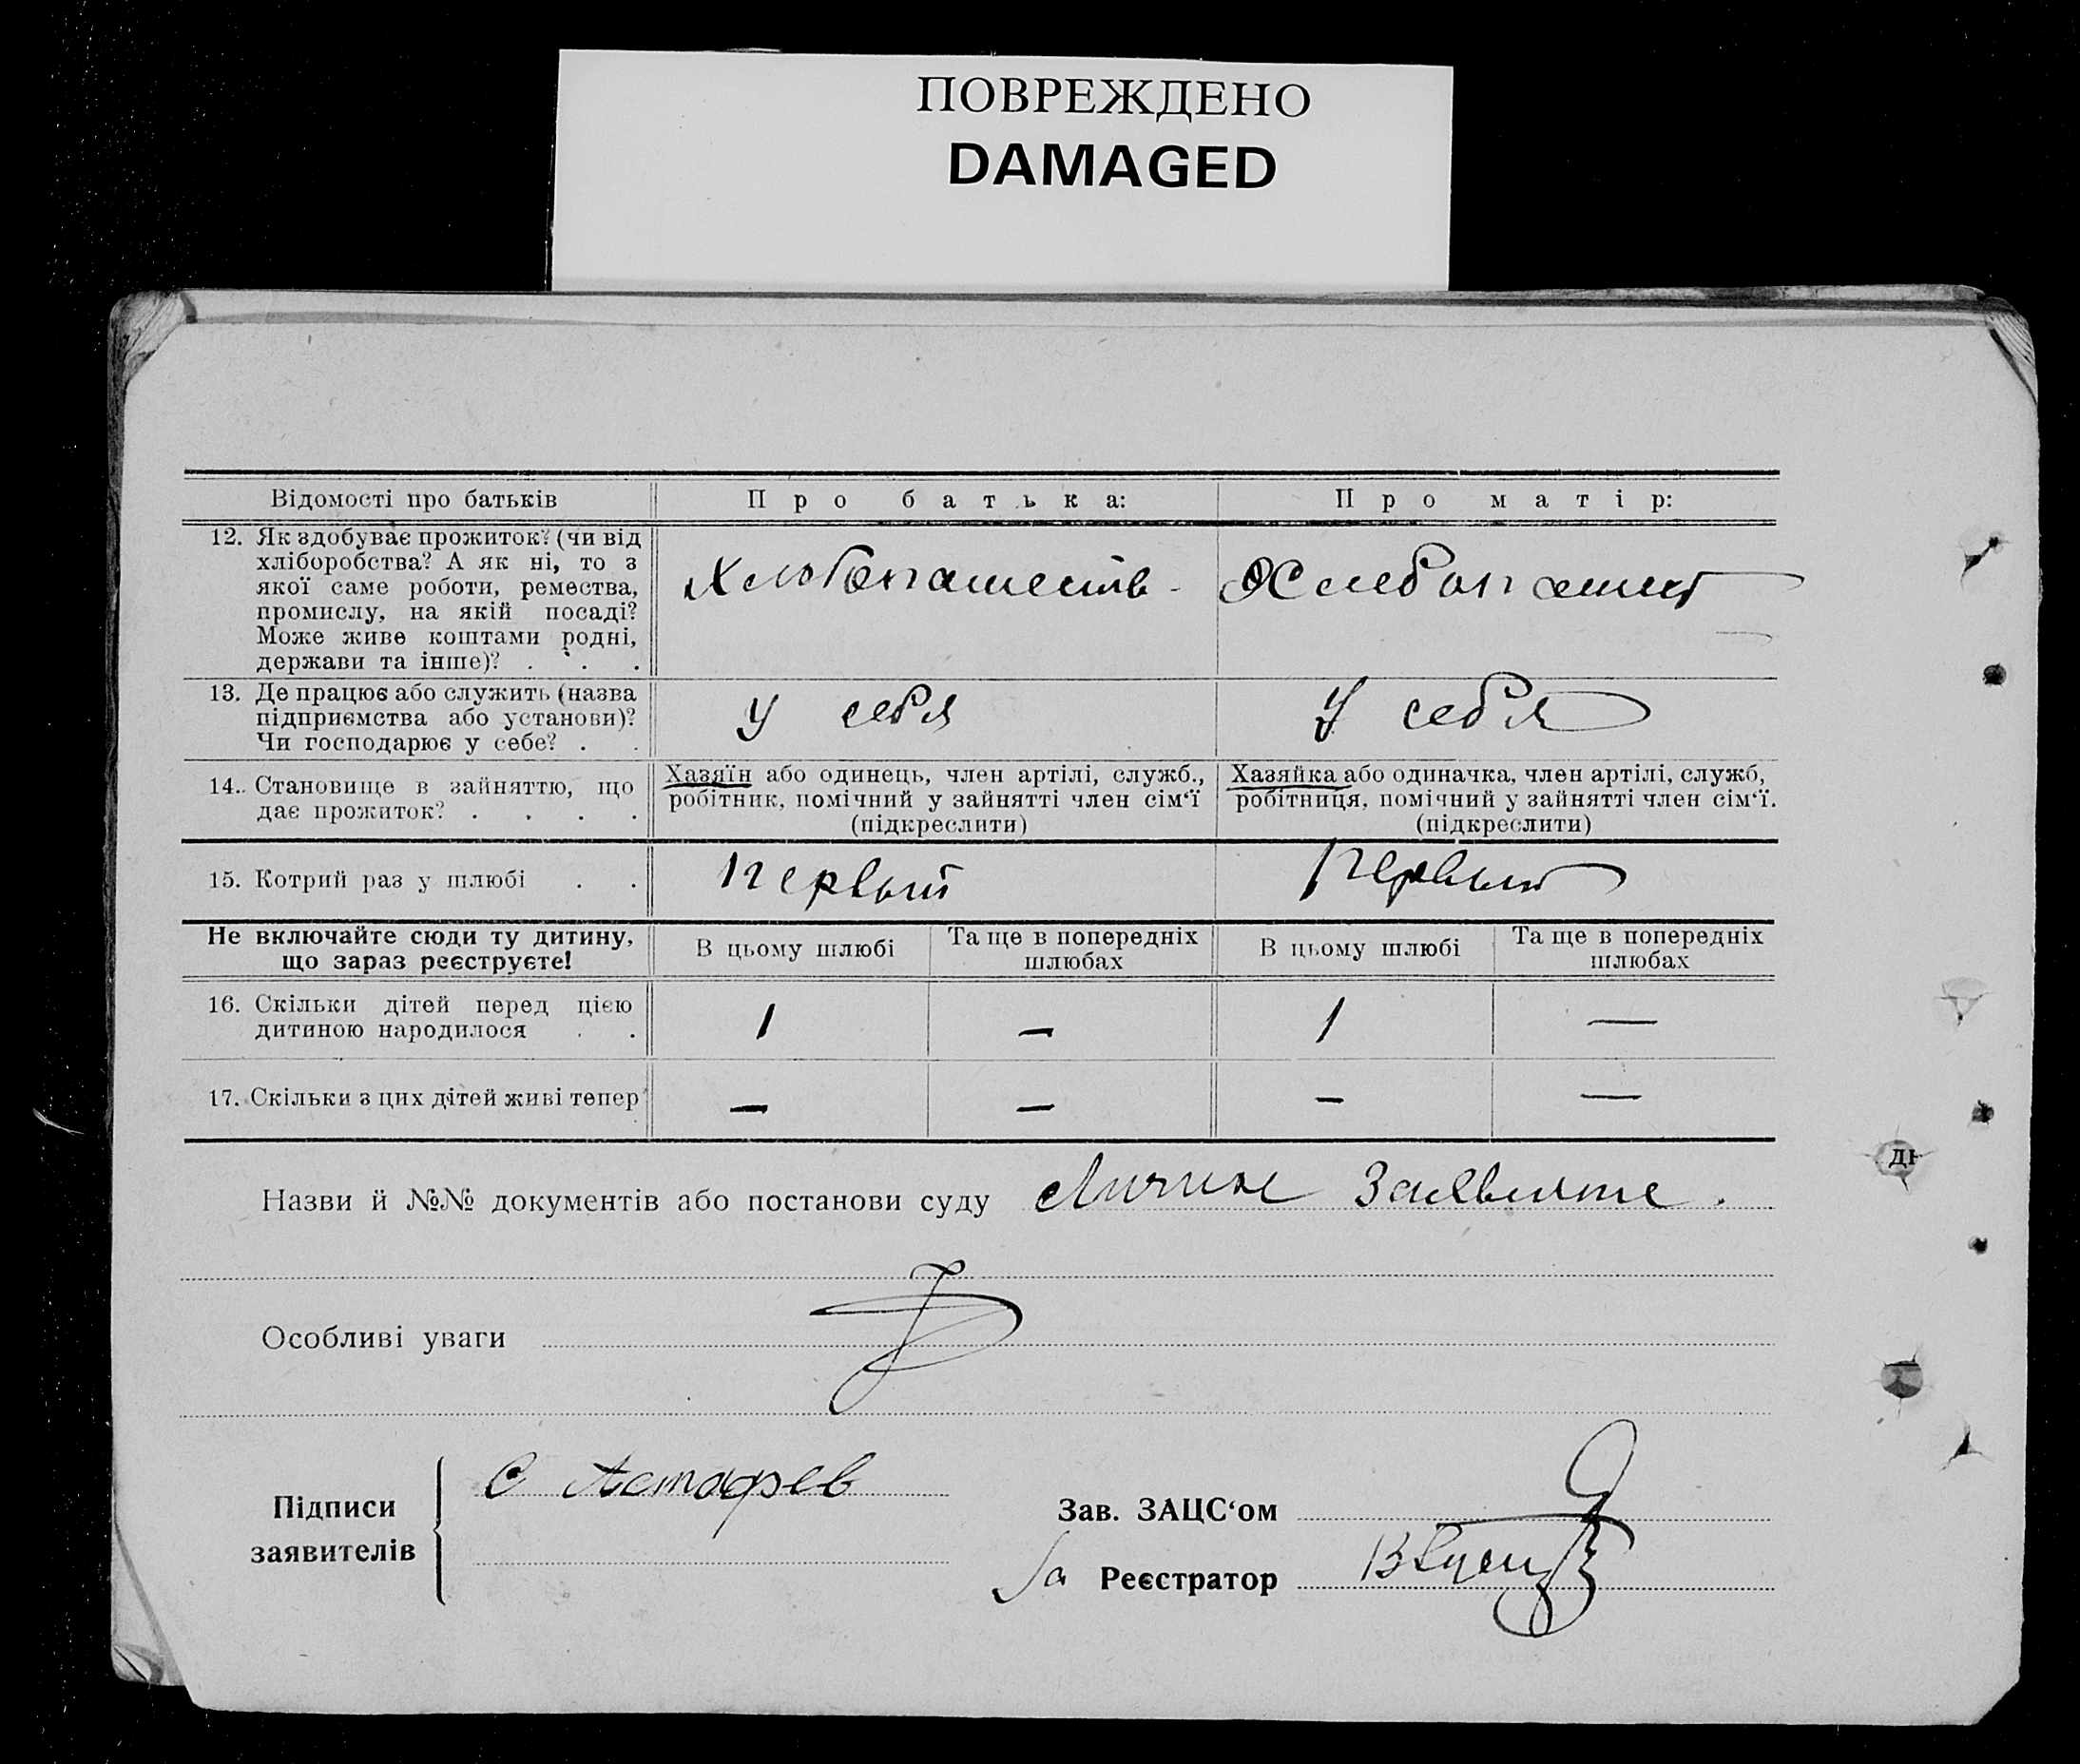 ПОВРЕЖДЕНО
DAMAGED
Відомості про батьків
Про батька:
Про матір:
12. Як здобуває прожиток? (чи від
хліборобства? А як ні, то з
якої саме роботи, ремества,
промислу, на якій посаді?
Може живе коштами родні,
держави та інше)? . . .
Хлебопашеств-
Хлебопашест
13. Де працює або служить (назва
підприємства або установи)?
Чи господарює у себе? . .
У себя
У себя
14. Становище в зайняттю, що
дає прожиток? . . . .
Хазяїн або одинець, член артілі, служб.,
робітник, помічний у зайнятті член сім‘ї
(підкреслити)
Хазяйка або одиначка, член артілі, служб,
робітниця, помічний у зайнятті член сім‘ї.
(підкреслити)
15. Котрий раз у шлюбі . .
Первый
Первый
Не включайте сюди ту дитину,
що зараз реєструєте!
В цьому шлюбі
Та ще в попередніх
шлюбах
В цьому шлюбі
Та ще в попередніх
шлюбах
16. Скільки дітей перед цією
дитиною народилося . .
1 — 1 —
17. Скільки з цих дітей живі тепер
— — — —
Назви й №№ документів або постанови суду
Особливі уваги
Підписи
заявителів
С Астафев
Зав. ЗАЦС‘ом
За Реєстратор